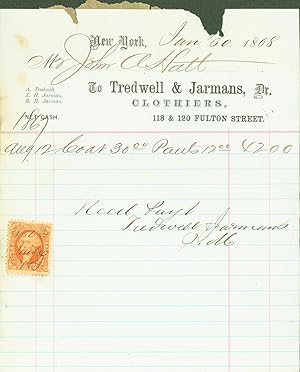 New York, Jan 1868
Mr John
To Tredwell & Jarmans, Dr.
A. Tredwell,
Z. H. Jarman,
R. H. Jarman,
CLOTHIERS,
NET CASH.
118 & 120 FULTON STREET.
1867
Aug 12 Coat 30 00 Pants 12 00 42 00
Recd Payt
Tredwell & Jarmans